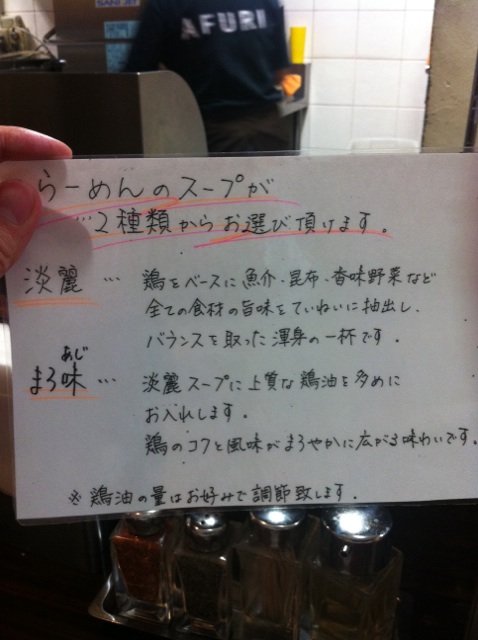 AFURI
らーめんのスープが
2種類からお選び頂けます。
淡麗 … 鶏をベースに魚介・昆布・香味野菜など
全ての食材の旨味をていねいに抽出し、
バランスを取った渾身の一杯です。
あじ
まろ味 … 淡麗スープに上質な鶏油を多めに
お入れします。
鶏のコクと風味がまろやかに広がる味わいです。
※鶏油の量はお好みで調節致します。